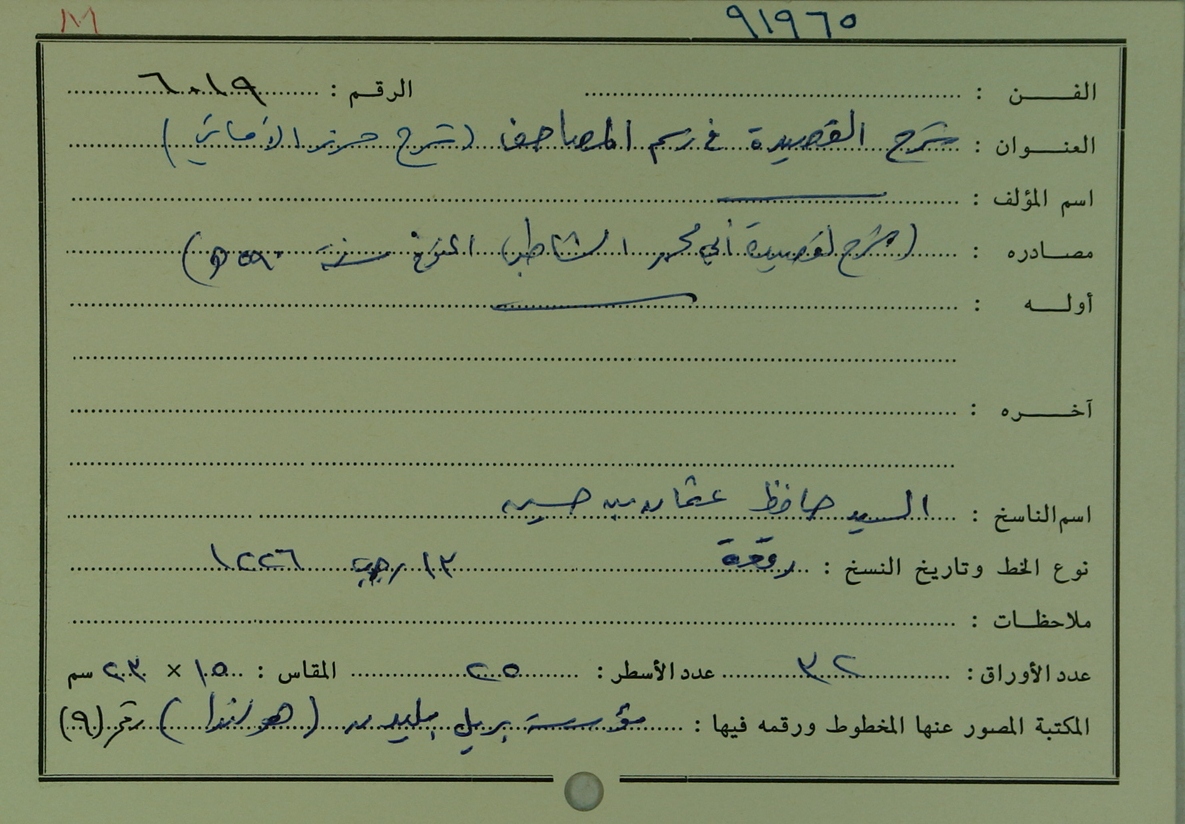 ٩١٩٦٥
M
الفن : الرقم : ٦٠١٩
العنوان : شرح القصيدة في رسم المصاحف (شرح حرز الأماني)
اسم المؤلف :
مصادره : (شرح لقصيدة أبي محمد الشاطبي المتوفى سنة ٥٩٠ هـ)
أوله :
آخره :
اسم الناسخ : السيد حافظ عثمان بن حسين
نوع الخط وتاريخ النسخ : رقعة ١٣ رجب ١٢٢٦
ملاحظات :
عدد الأوراق : ٣٢ عدد الأسطر : ٢٥ المقاس : ١٥ × سم
المكتبة المصور عنها المخطوط ورقمه فيها : مؤسسة بريل بليدن (هولندا) رقم (٩)